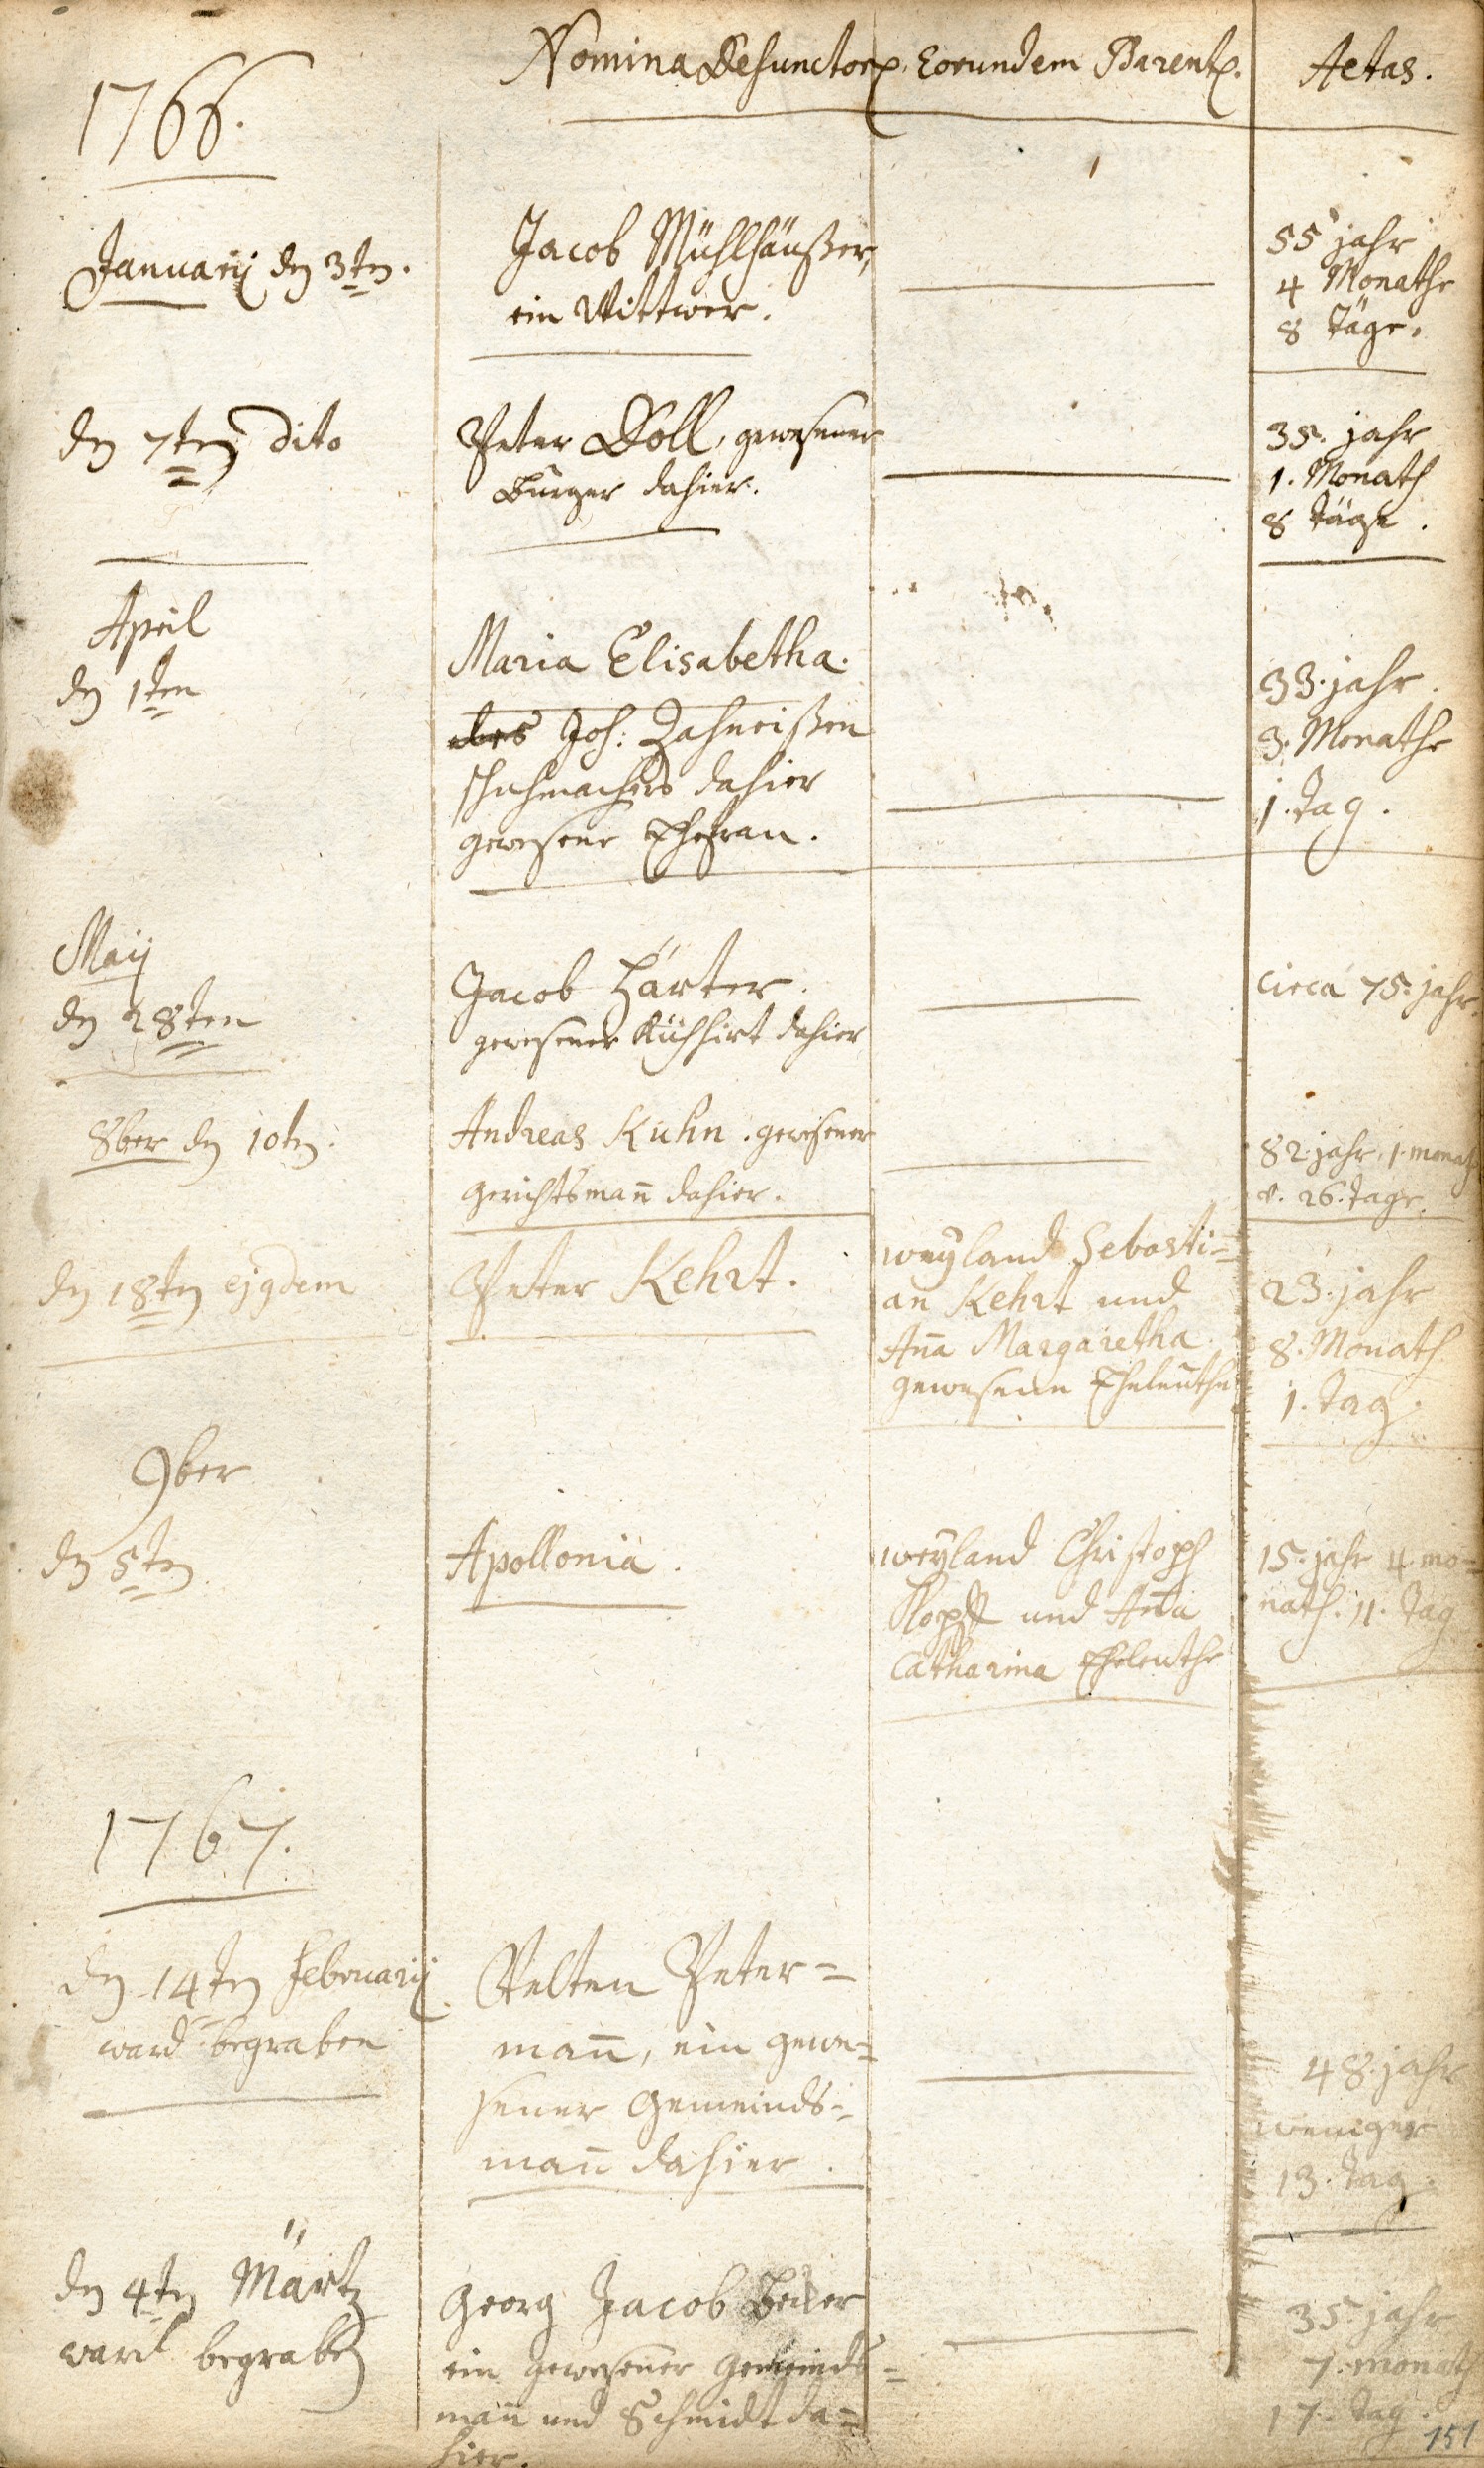 1766.
Nomina Defunctor. Eorundem Parent. Aetas.
Januarij den 3ten.
Jacob Mühlhäußer,
ein Wittwer.
55 jahr
4 Monathe
8 Täge.
den 7ten dito
Peter Doll, gewesener
Burger dahier.
35. jahr
1. Monath
8 Täge.
April
den 1ten
Maria Elisabetha.
des Joh: Zahneißen
schuhmachers dahier
gewesene Ehefrau.
33. jahr.
3. Monathe
1. Tag.
Maij
den 28ten
Jacob Härter.
gewesener Kühhirt dahier
circa 75. jahr.
8ber den 10ten.
Andreas Kuhn. gewesener
Gerichtsmañ dahier.
82. jahr, 1. monath
v. 26. Tage.
den 18ten ejqdem
Peter Kehrt.
weyland Sebasti=
an Kehrt und
Aña Margaretha.
gewesene Eheleuthe
23. jahr
8. Monath
1. Tag.
9ber
den 5ten
Apollonia.
weyland Christoph
Klopff und Aña
Catharina Eheleuthe
15. jahr 4. mo=
nath. 11. Tag
1767.
den 14ten Februarij
ward begraben
Velten Peter=
mañ, ein gewe=
sener Gemeinds=
mañ dahier.
48. jahr
weniger
13. Tag.
den 4ten Märtz
ward begraben
Georg Jacob Beiler
ein gewesener Gemeinds=
mañ und Schmidt da=
hier.
35. jahr
7. monath
17. Tag.
151